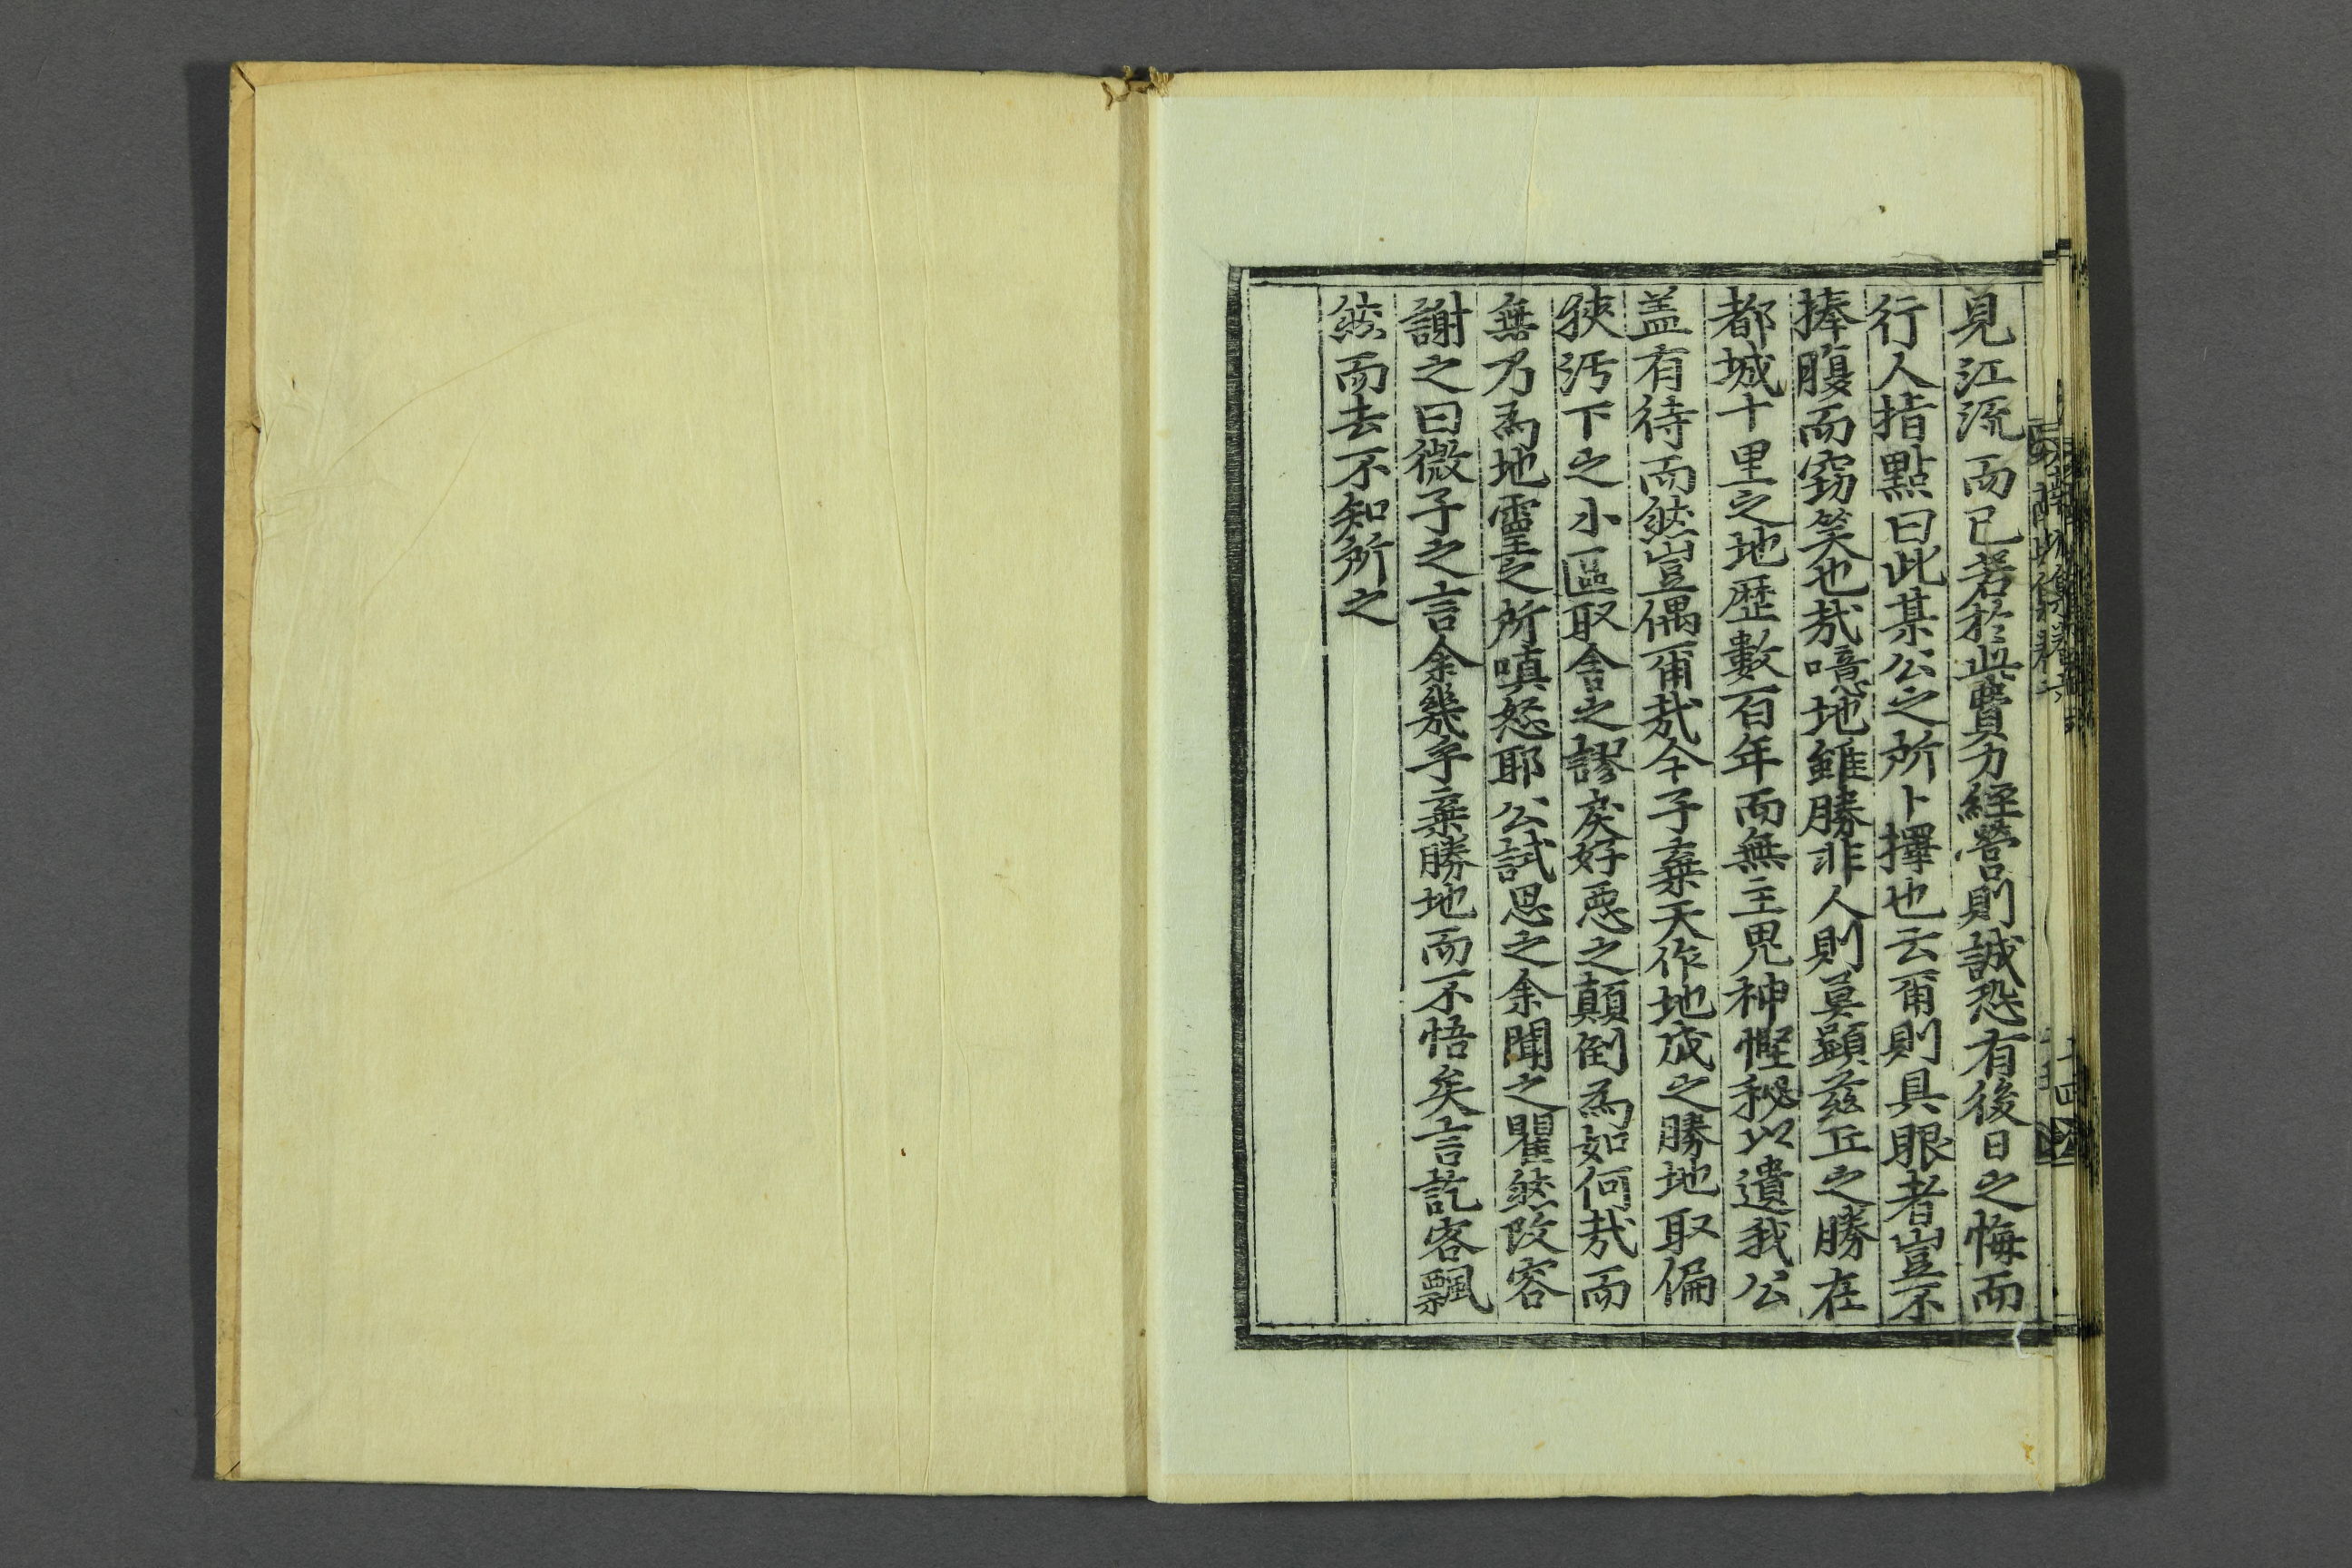 見江流而已若於此費力經營則誠恐有後日之悔而
行人指點曰此某公之所卜擇也云爾則具眼者豈不
捧腹而竊笑也㢤噫地雖勝非人則莫顯兹丘之勝在
都城十里之地歷數百年而無主鬼神慳秘以遺我公
盖有待而然豈偶爾㢤今子棄天作地成之勝地取偏
狹汚下之小區取舍之謬戾好惡之顛倒爲如何㢤而
無乃爲地靈之所嗔怒耶公試思之余聞之瞿然改容
謝之曰微子之言余幾乎棄勝地而不悟矣言訖客飄
然而去不知所之